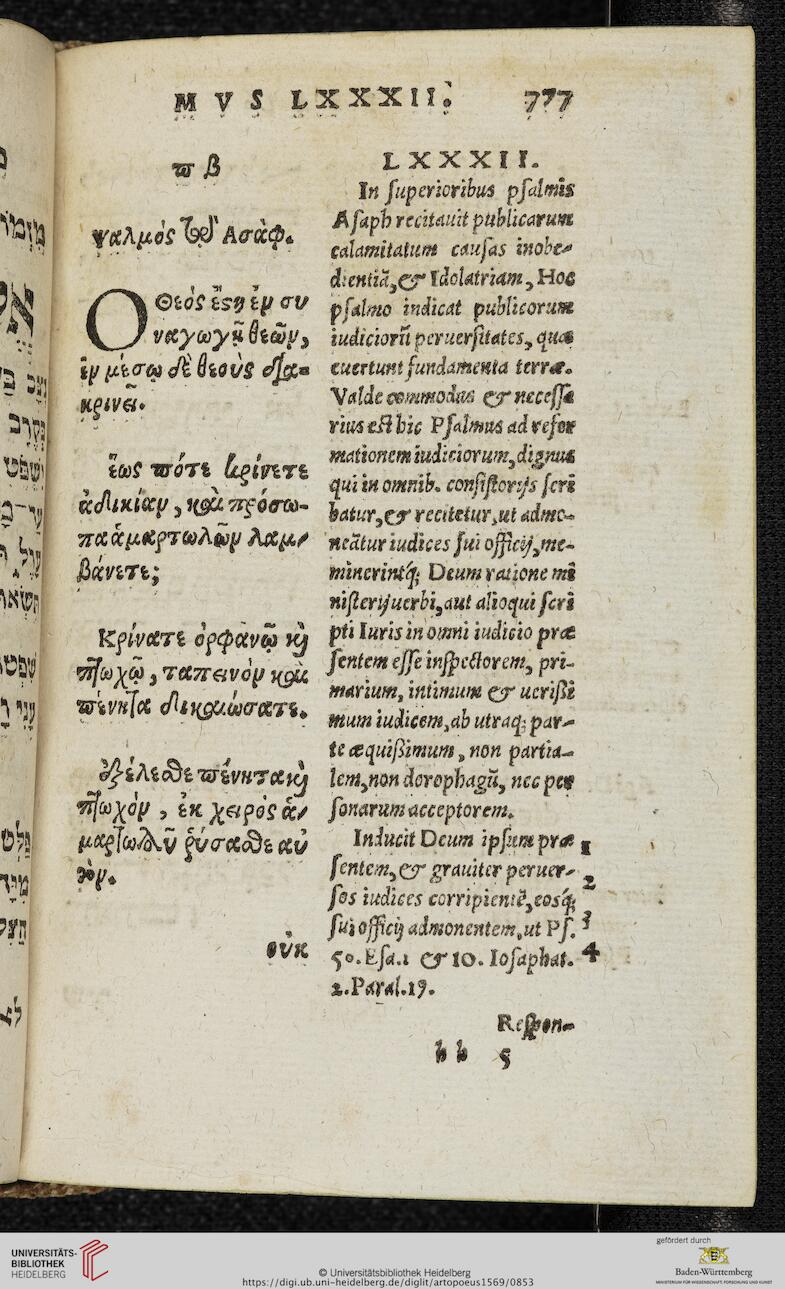 MVS LXXXII. 777
πβ
ψαλμός τῷ Ἀσάφ.
Ὁ Θεός ἔστη ἐν συ
ναγωγῇ θεῶν,
ἐν μέσῳ δὲ θεοὺς δια-
κρινεῖ.
ἕως πότε κρίνετε
ἀδικίαν, καὶ πρόσω-
πα ἁμαρτωλῶν λαμ-
βάνετε;
Κρίνατε ὀρφανῷ καὶ
πτωχῷ, ταπεινὸν καὶ
πένητα δικαιώσατε.
ἐξέλεσθε πένητα καὶ
πτωχόν, ἐκ χειρὸς ἁ-
μαρτωλοῦ ῥύσασθε αὐ
τόν.
οὐκ
LXXXII.
In superioribus psalmis
Asaph recitauit publicarum
calamitatum causas inobe-
dientiã, & Idolatriam, Hoc
psalmo indicat publicorum
iudiciorũ peruersitates, quæ
euertunt fundamenta terræ.
Valde commodus & necessa
rius est hic Psalmus ad refor
mationem iudiciorum, dignus
qui in omnib. consistorijs scri
batur, & recitetur, ut admo-
neãtur iudices sui officij, me-
minerintq́; Deum ratione mi
nisterij uerbi, aut alioqui scri
pti Iuris in omni iudicio præ
sentem esse inspectorem, pri-
marium, intimum & uerißi
mum iudicem, ab utraq; par-
te æquißimum, non partia-
lem, non dorophagũ, nec per
sonarum acceptorem.
Inducit Deum ipsum præ 1
sentem, & grauiter peruer- 2
sos iudices corripientẽ, eosq́;
sui officij admonentem, ut Ps. 3
50. Esa. 1 & 10. Iosaphat. 4
2. Paral. 19.
Respon-
bb 5
UNIVERSITÄTS-
BIBLIOTHEK
HEIDELBERG
© Universitätsbibliothek Heidelberg
https://digi.ub.uni-heidelberg.de/diglit/artopoeus1569/0853
gefördert durch
Baden-Württemberg
MINISTERIUM FÜR WISSENSCHAFT, FORSCHUNG UND KUNST